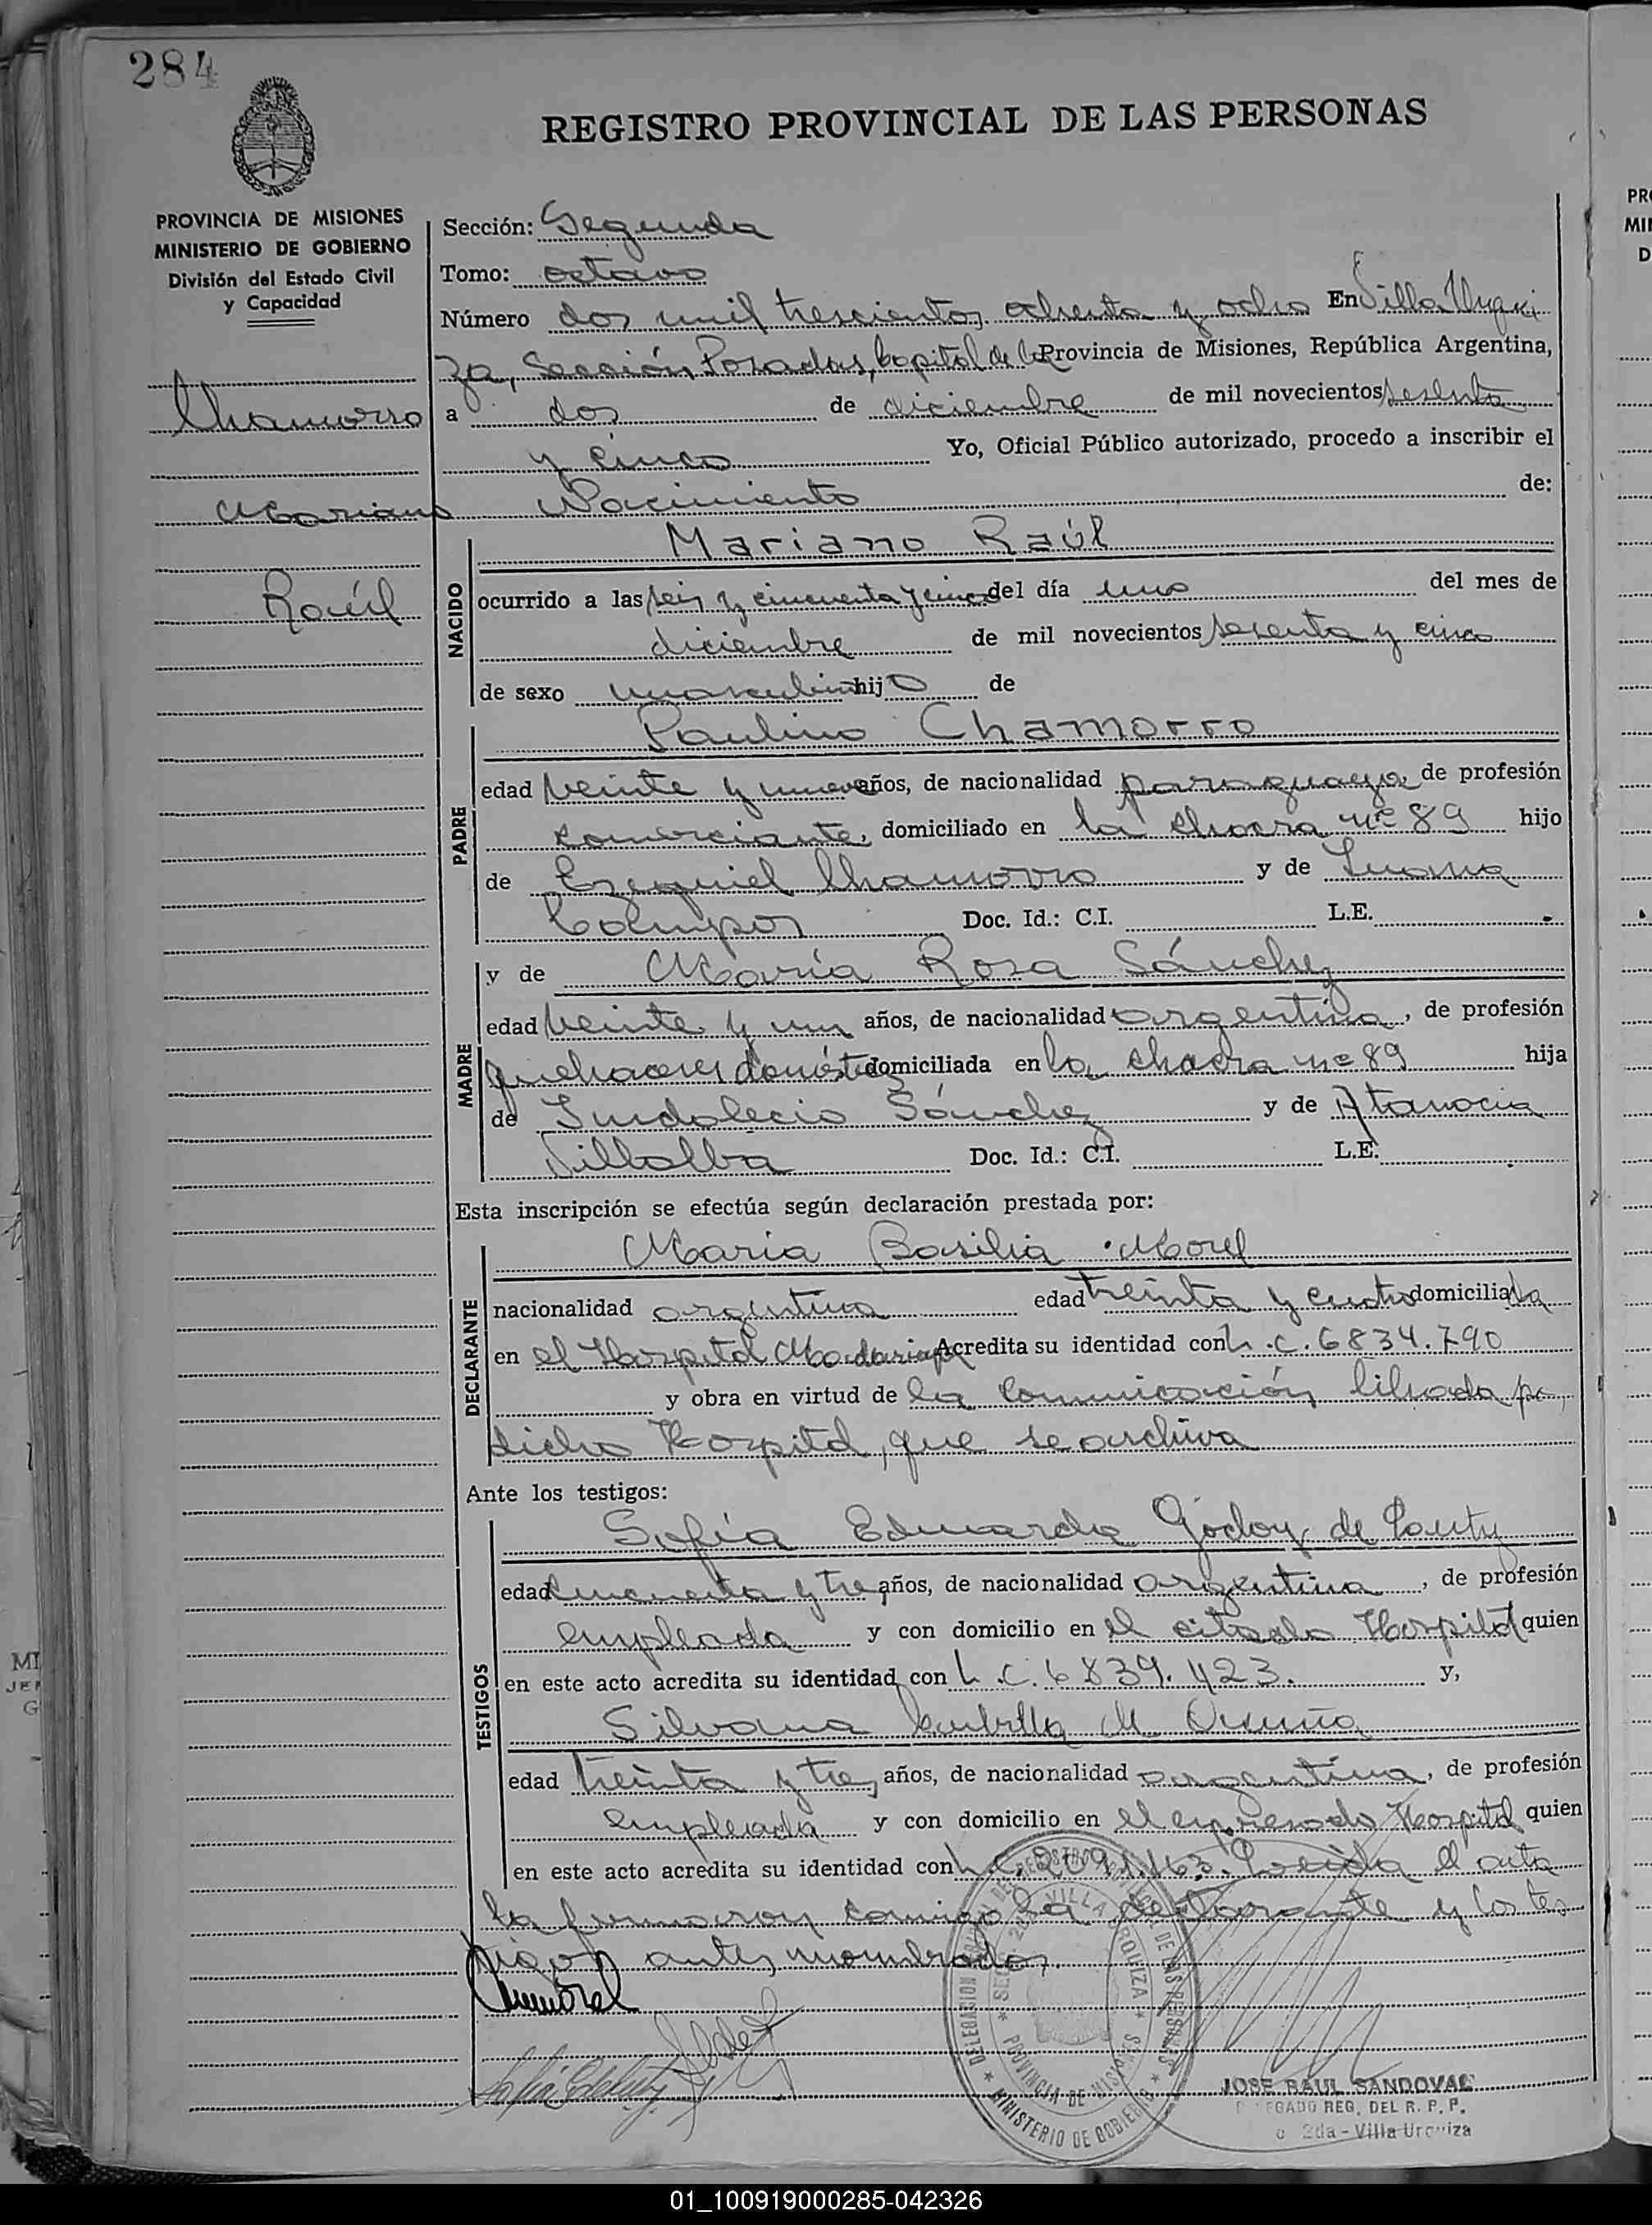 284
REGISTRO PROVINCIAL DE LAS PERSONAS
PROVINCIA DE MISIONES
MINISTERIO DE GOBIERNO
División del Estado Civil
y Capacidad
Chamorro
Mariano
Raúl
Sección: Segunda
Tomo: octavo
Número dos mil trescientos ochenta y ocho En Villa Urqui
za, Sección Posadas, Capital de la Provincia de Misiones, República Argentina,
a dos de diciembre de mil novecientos sesenta
y cinco Yo, Oficial Público autorizado, procedo a inscribir el
Nacimiento de:
NACIDO
Mariano Raúl
ocurrido a las seis y cincuenta y cinco del día uno del mes de
diciembre de mil novecientos sesenta y cinco
de sexo masculino hijo de
PADRE
Paulino Chamorro
edad veinte y nueve años, de nacionalidad paraguaya de profesión
comerciante, domiciliado en la chacra nº 89 hijo
de Ezequiel Chamorro y de
Campos Doc. Id.: C.I. L.E.
MADRE
y de María Rosa Sánchez
edad veinte y un años, de nacionalidad argentina, de profesión
quehaceres domést domiciliada en la chacra nº 89 hija
de Indolecio Sánchez y de Atanacia
Villalba Doc. Id.: C.I. L.E.
Esta inscripción se efectúa según declaración prestada por:
DECLARANTE
María Basilia Morel
nacionalidad argentina edad treinta y cuatro domiciliada
en el Hospital Madariaga Acredita su identidad con L.C. 6834.790
y obra en virtud de la comunicación librada por
dicho Hospital, que se archiva
Ante los testigos:
TESTIGOS
Sofía Eduarda Godoy de
edad cincuenta y tres años, de nacionalidad argentina, de profesión
empleada y con domicilio en el citado Hospital quien
en este acto acredita su identidad con L.C. 6839.423. y,
Silvana M.
edad treinta y tres años, de nacionalidad argentina, de profesión
empleada y con domicilio en el expresado Hospital quien
en este acto acredita su identidad con L.C. Leída el acta
la firmaron conmigo la declarante y los tes
tigos antes nombrados.
DELEGACION DEL REGISTRO PROVINCIAL DE LAS PERSONAS
MINISTERIO DE GOBIERNO
VILLA URQUIZA
PROVINCIA DE MISIONES
JOSE RAUL SANDOVAL
DELEGADO REG. DEL R. P. P.
2da - Villa Urquiza
01_100919000285-042326